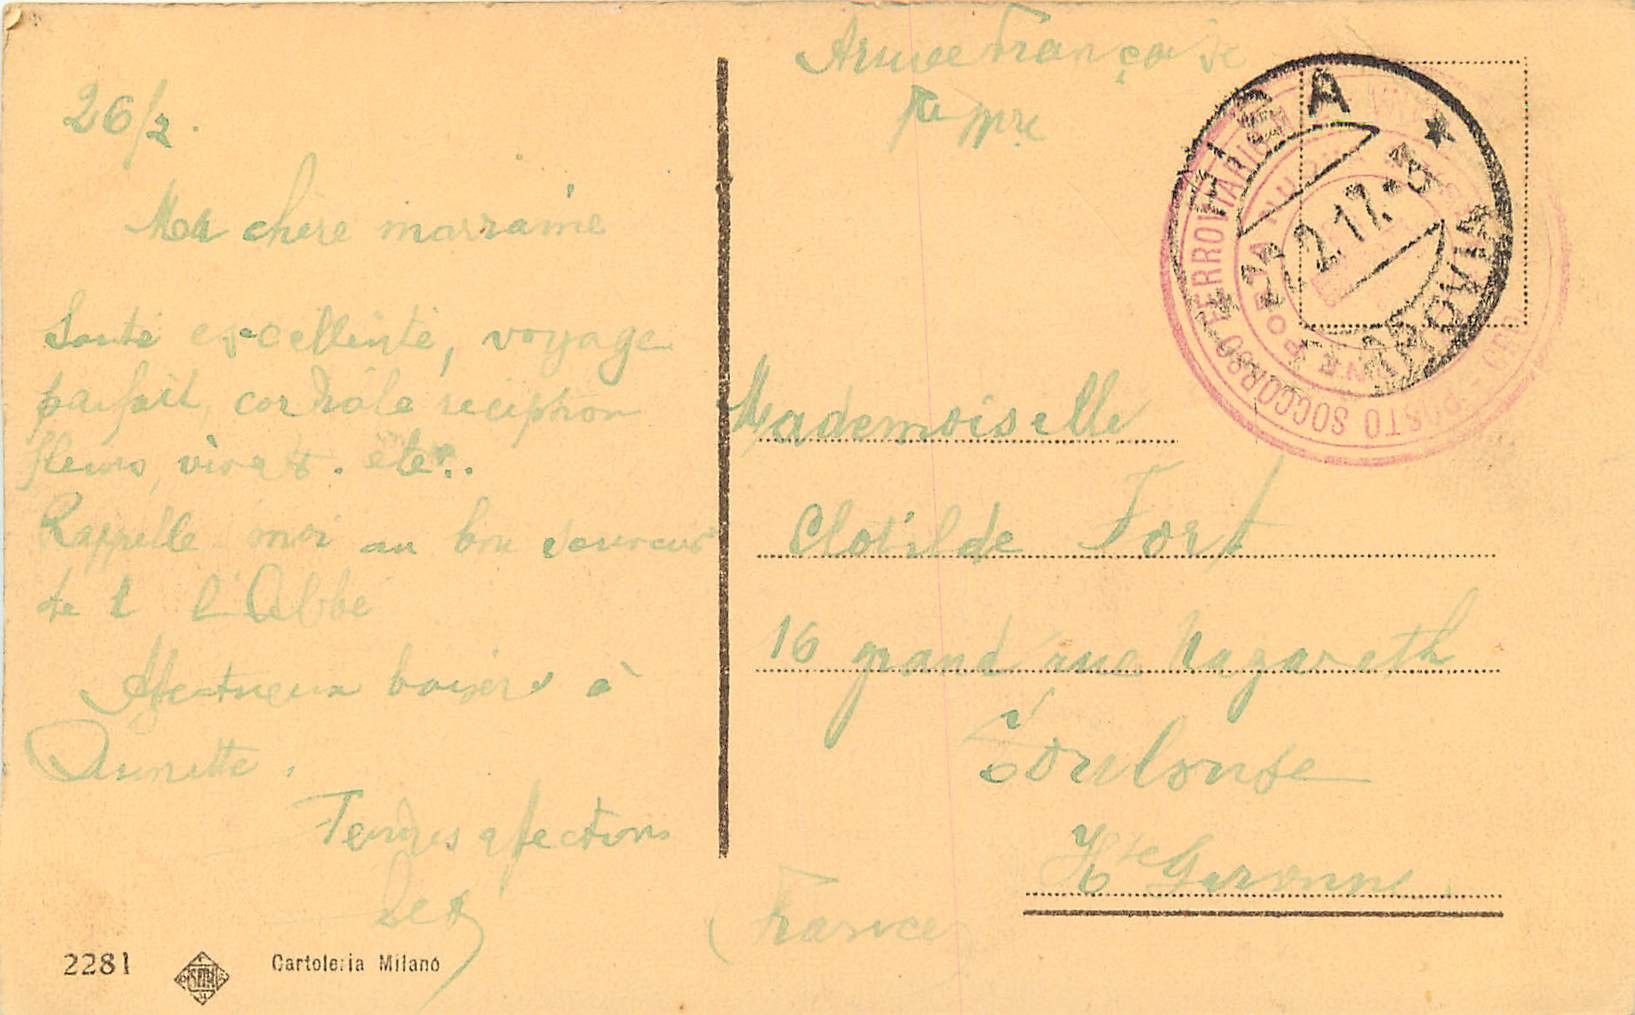 26/2.
Ma chère marraine
Santé excellente, voyage
parfait, cordiale réception
fleurs, vivats. etc..
Rappelle moi au bon souvenir
de l'Abbé
Afectueux baisers à
Tendres afections
Armée Française
Mademoiselle
Clotilde Fort
16 grand rue Nazareth
Toulouse
Hte Garonne.
France
POSTO SOCCORSO FERROVIARIO
PORTA NUOVA
2.17.
FERROVIA
2281
Cartoleria Milano